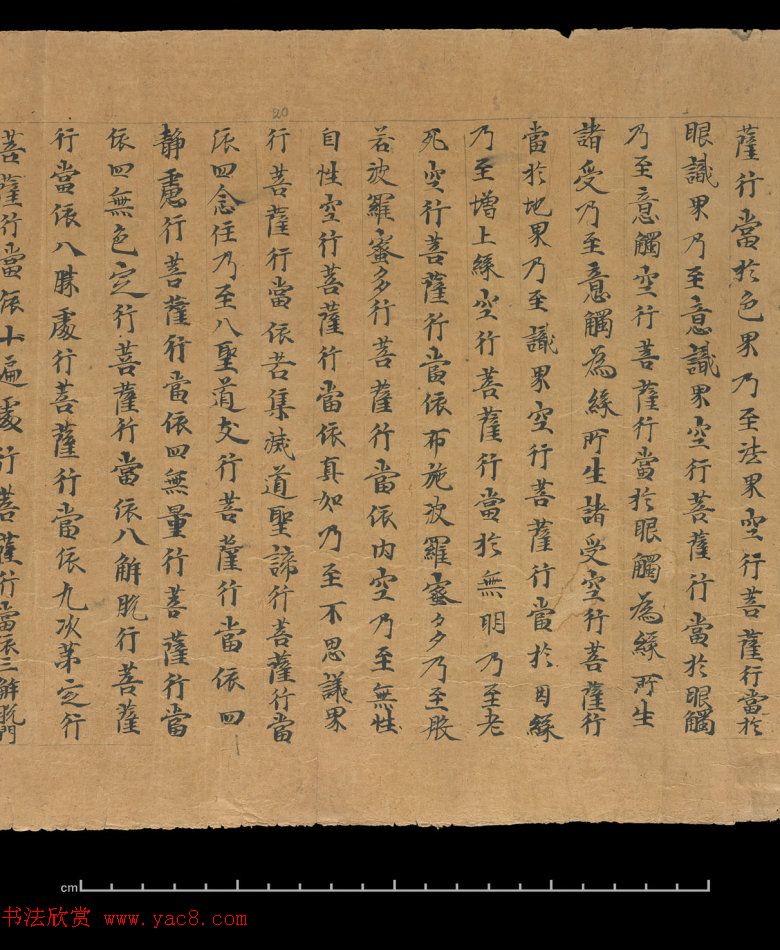 薩行當於色界乃至法界空行菩薩行當於
眼識界乃至意識界空行菩薩行當於眼觸
乃至意觸空行菩薩行當於眼觸為緣所生
諸受乃至意觸為緣所生諸受空行菩薩行
當於地界乃至識界空行菩薩行當於因緣
乃至增上緣空行菩薩行當於無明乃至老
死空行菩薩行當依布施波羅蜜多乃至般
若波羅蜜多行菩薩行當依內空乃至無性
自性空行菩薩行當依真如乃至不思議界
行菩薩行當依苦集滅道聖諦行菩薩行當
依四念住乃至八聖道支行菩薩行當依四
靜慮行菩薩行當依四無量行菩薩行當
依四無色定行菩薩行當依八解脫行菩薩
行當依八勝處行菩薩行當依九次第定行
菩薩行當依十遍處行菩薩行當依三解脫門
20
cm
书法欣赏 www.yac8.com